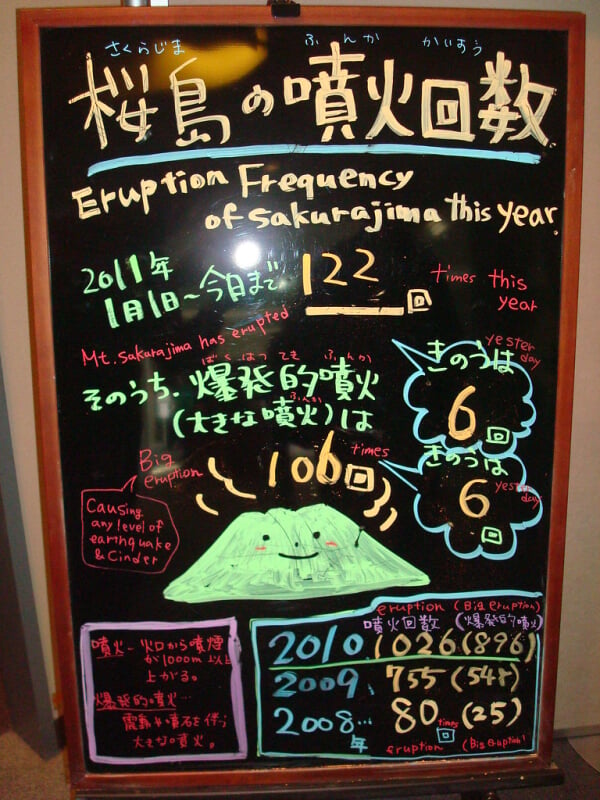 さくらじま ふんか かいすう
桜島の噴火回数
Eruption Frequency
of Sakurajima this year.
2011年
1月1日～今日まで 122回
times this
year
Mt. Sakurajima has erupted
ばくはつてき ふんか
そのうち、爆発的噴火
ふんか
(大きな噴火)は
106回
times
Big
eruption
Causing
any level of
earthquake
& Cinder
きのうは
yester
day
6回
きのうは
yester
day
6
回
噴火―火口から噴煙
が1000m以上
上がる。
爆発的噴火…
震動や噴石を伴う
大きな噴火。
eruption (Big eruption)
噴火回数 (爆発的噴火)
2010 1026(896)
2009 755(548)
2008… 80 times 回 (25)
年 eruption (Big Eruption)